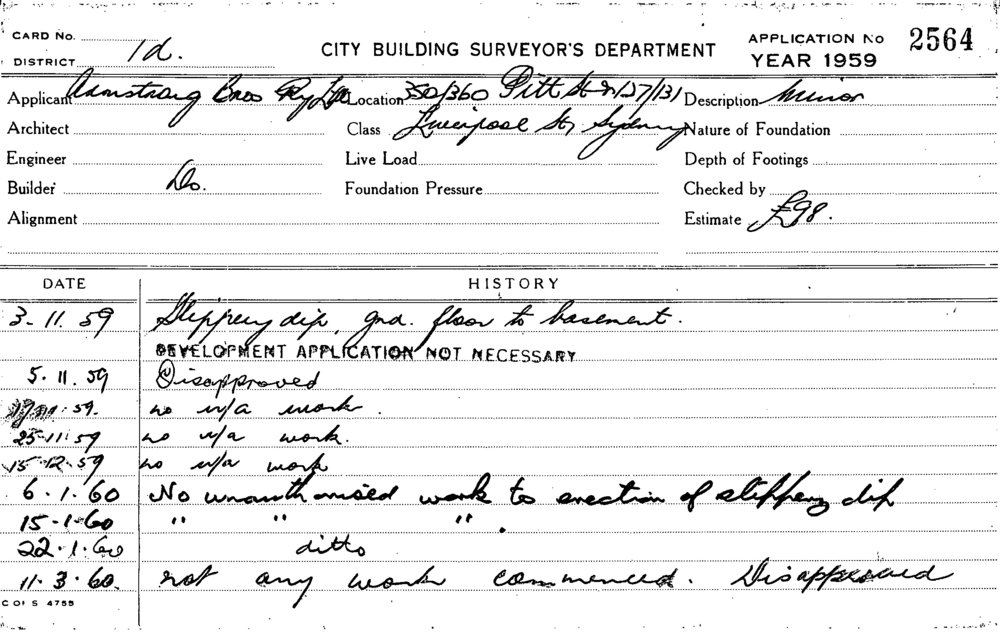 CARD No.
DISTRICT 1d.
CITY BUILDING SURVEYOR'S DEPARTMENT
APPLICATION No 2564
YEAR 1959
Applicant Armstrong Bros Pty Ltd Location 350/360 Pitt St & 127/131 Description Minor
Architect Class Liverpool St, Sydney Nature of Foundation
Engineer Live Load Depth of Footings
Builder Do. Foundation Pressure Checked by
Alignment Estimate £98.
DATE HISTORY
3-11.59 Slippery dip, gnd. floor to basement.
DEVELOPMENT APPLICATION NOT NECESSARY
5.11.59 Disapproved
11.59. no u/a work.
25-11.59 no u/a work.
15-12.59 no u/a work
6.1.60 No unauthorised work to erection of slippery dip
15-1-60 " " " .
22.1.60 ditto
11.3.60. not any work commenced. Disapproved
C OF S 4755